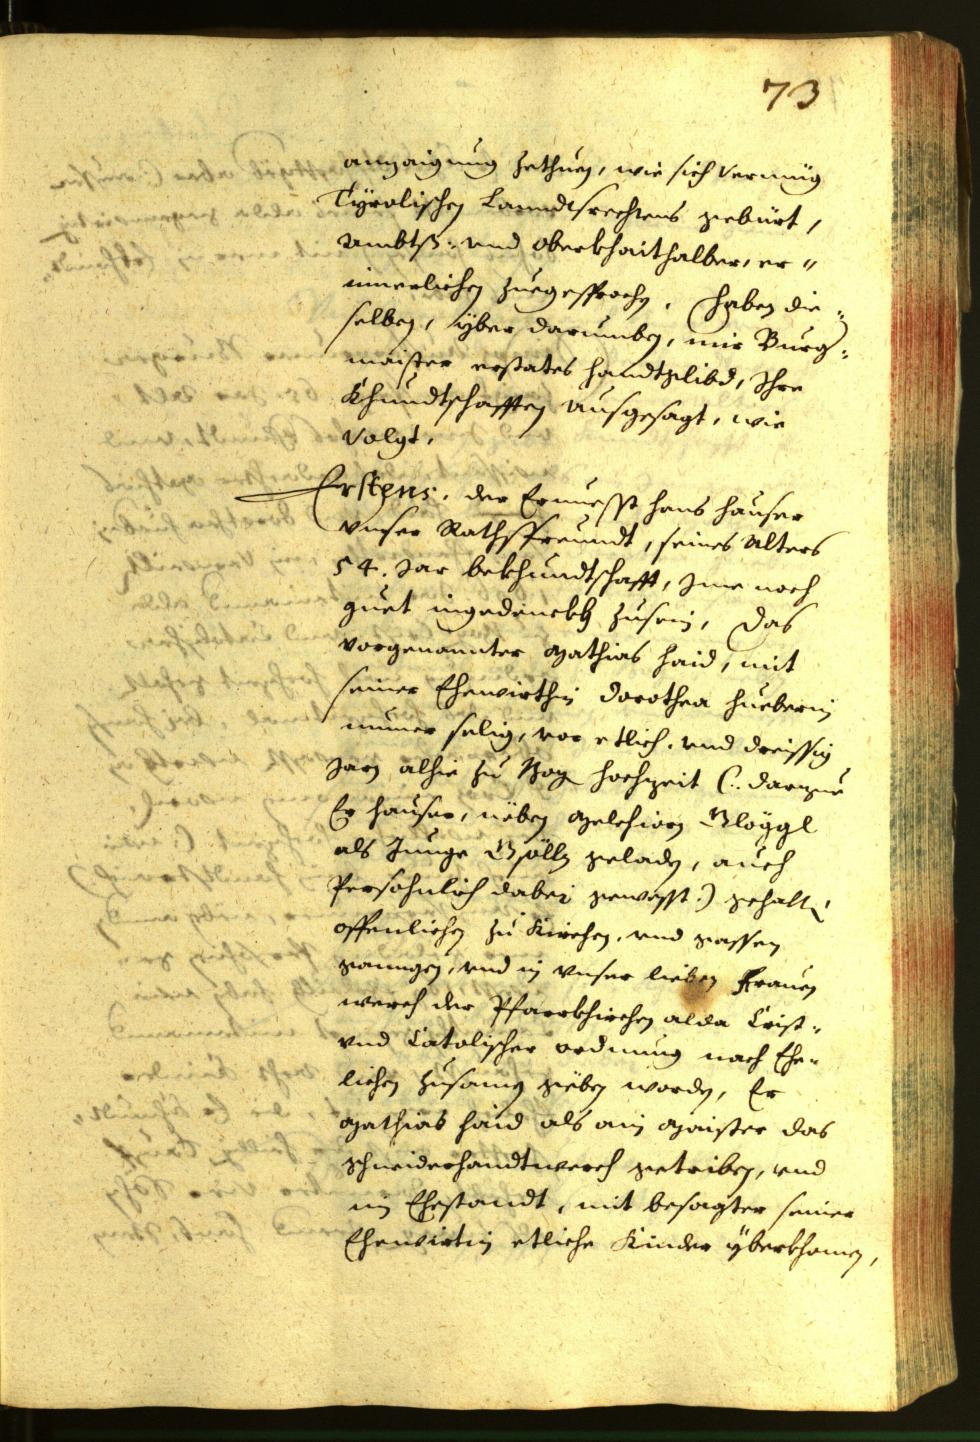 73
anzaigung zethuen, wie sich vermüg
Tÿrolischen Lanndtsrechtens gebürt,
Ambtß: und Oberkhaithalber, er„
innerlichen zuegesprochen. Haben die„
selben, ÿber darumben, mir Burg„
maister erstates handtglibd, Ihre
Khundtschafften ausgesagt, wie
volgt.
Erstens. der Ernvesst hans hauser
unser Rathsfreundt, seines Alters
54. Jar bekhundtschafft, Ime noch
guet ingedenckh zusein, Das
vorgenannter Mathias Haid, mit
seiner Ehewirthin Dorothea Hueberin
numer selig, vor etlich und dreissig
Jarn alhie zu Bozen Hochzeit (: darzue
Er hauser, neben Melchiorn Plöggl
als Junge Gsölln geladen, auch
Persohnlich dabei gewesst :) gehalten
offentlichen zu Kirchen, und gassen
ganngen, und in unser lieben Frauen
werch der Pfarrkhirchen alda Crist„
und Catolischer ordnung nach Ehe„
lichen zusamen geben worden, Er
Mathias Haid als ain Maister das
schneiderhandtwerch getriben, und
im Ehestandt, mit besagter seiner
Ehewirtin etliche Kinder ÿberkhomen,